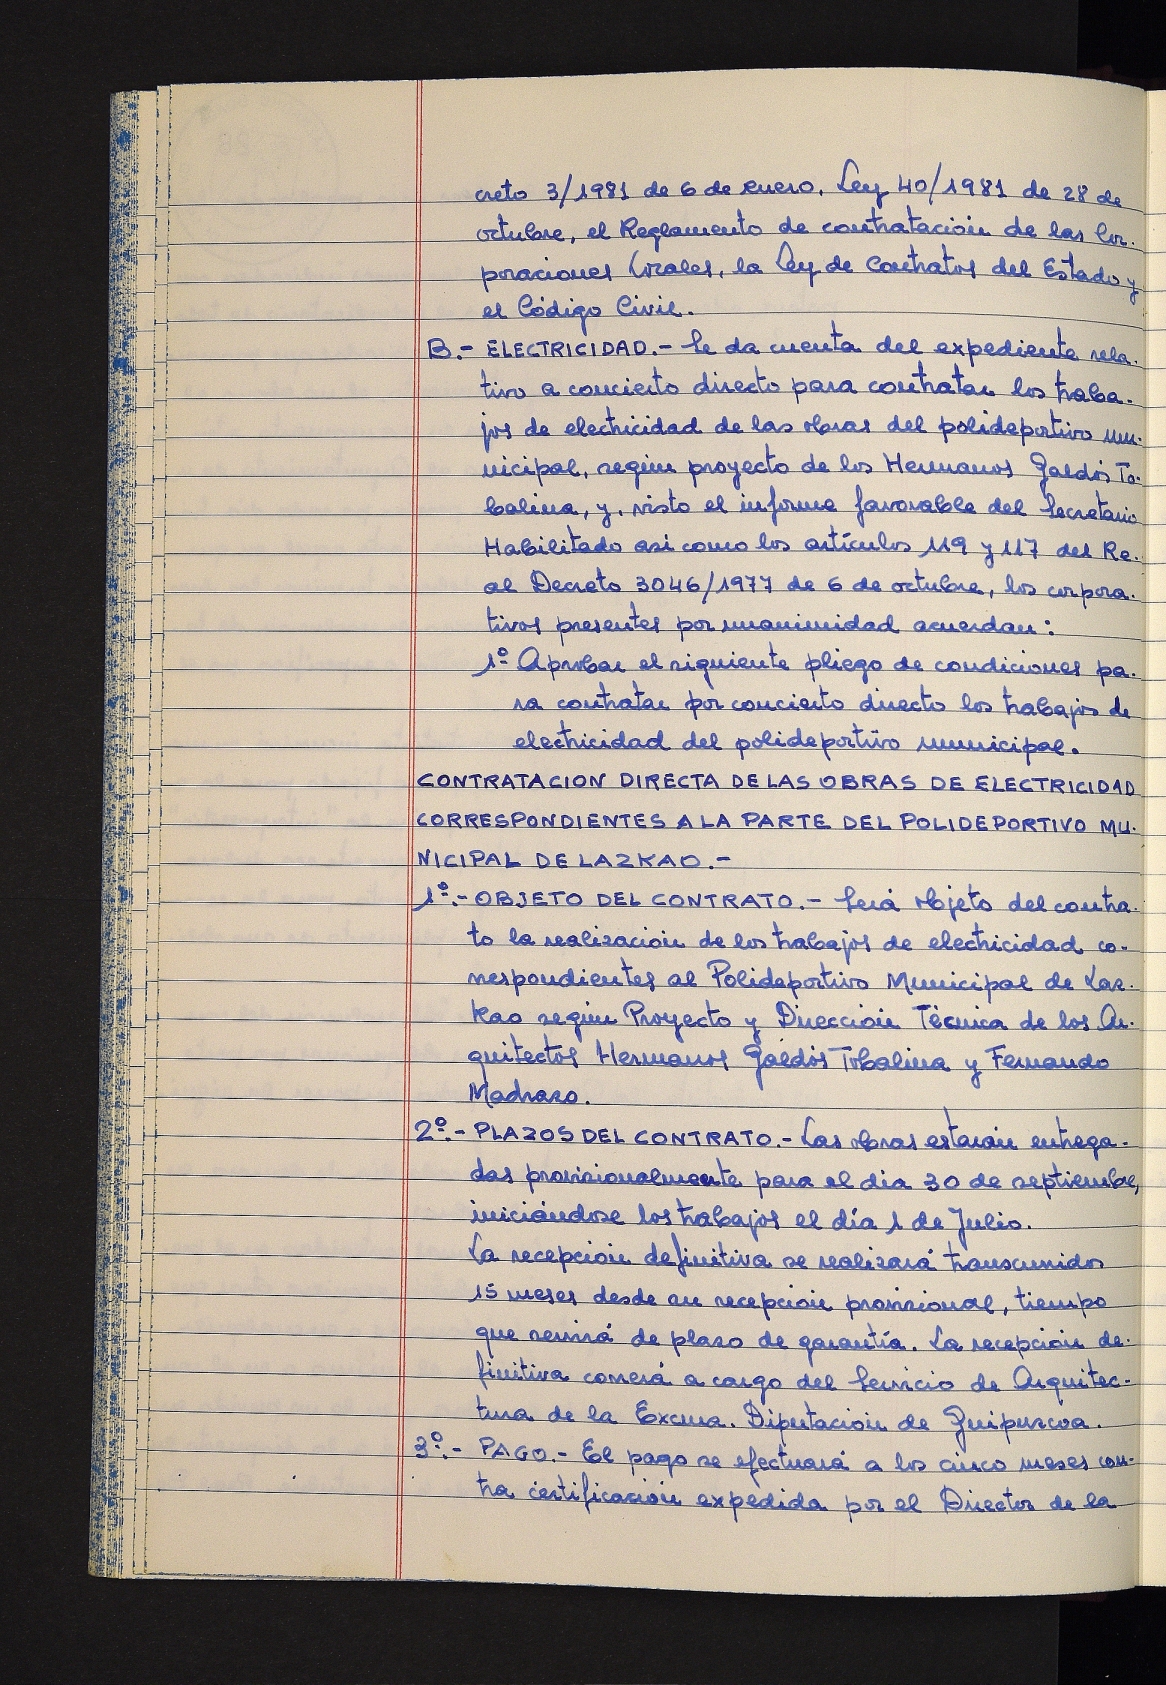 creto 3/1981 de 6 de enero, Ley 40/1981 de 28 de
octubre, el Reglamento de contratación de las Cor-
poraciones Locales, la Ley de Contratos del Estado y
el Código Civil.
B.- ELECTRICIDAD.- Se da cuenta del expediente rela-
tivo a concierto directo para contratar los traba-
jos de electricidad de las obras del polideportivo mu-
nicipal, según proyecto de los Hermanos Galdós To-
balina, y, visto el informe favorable del Secretario
Habilitado asi como los artículos 119 y 117 del Re-
al Decreto 3046/1977 de 6 de octubre, los corpora-
tivos presentes por unanimidad acuerdan:
1º Aprobar el siguiente pliego de condiciones pa-
ra contratar por concierto directo los trabajos de
electricidad del polideportivo municipal.
CONTRATACION DIRECTA DE LAS OBRAS DE ELECTRICIDAD
CORRESPONDIENTES A LA PARTE DEL POLIDEPORTIVO MU-
NICIPAL DE LAZKAO.-
1º.- OBJETO DEL CONTRATO.- Será objeto del contra-
to la realización de los trabajos de electricidad co-
rrespondientes al Polideportivo Municipal de Laz-
kao según Proyecto y Dirección Técnica de los Ar-
quitectos Hermanos Galdós Tobalina y Fernando
Madrazo.
2º.- PLAZOS DEL CONTRATO.- Las obras estarán entrega-
das provisionalmente para el dia 30 de septiembre,
iniciándose los trabajos el día 1 de Julio.
La recepción definitiva se realizará transcurridos
15 meses desde su recepción provisional, tiempo
que servirá de plazo de garantía. La recepción de-
finitiva correrá a cargo del Servicio de Arquitec-
tura de la Excma. Diputación de Guipuzcoa.
3º.- PAGO.- El pago se efectuará a los cinco meses con-
tra certificación expedida por el Director de la